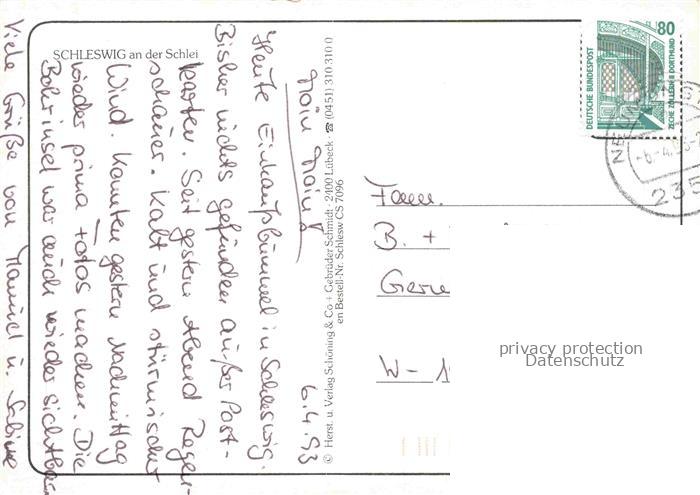 SCHLESWIG an der Schlei
6.4.93
Moin Moin!
Heute Einkaufsbummel in Schleswig.
Bisher nichts gefunden außer Post-
karten. Seit gestern Abend Regen-
schauer. Kalt und stürmischer
Wind. Konnten gestern Nachmittag
wieder prima Fotos machen. Die
Bohrinsel war auch wieder sichtbar
Viele Grüße von Manuel u. Sabine
© Herst. u. Verlag Schöning & Co + Gebrüder Schmidt · 2400 Lübeck · ☎ (0451) 310 310 0
en Bestell-Nr. Schlesw CS 7096
DEUTSCHE BUNDESPOST
80
ZECHE ZOLLERN II DORTMUND
Fam.
B. +
W-1
privacy protection
Datenschutz